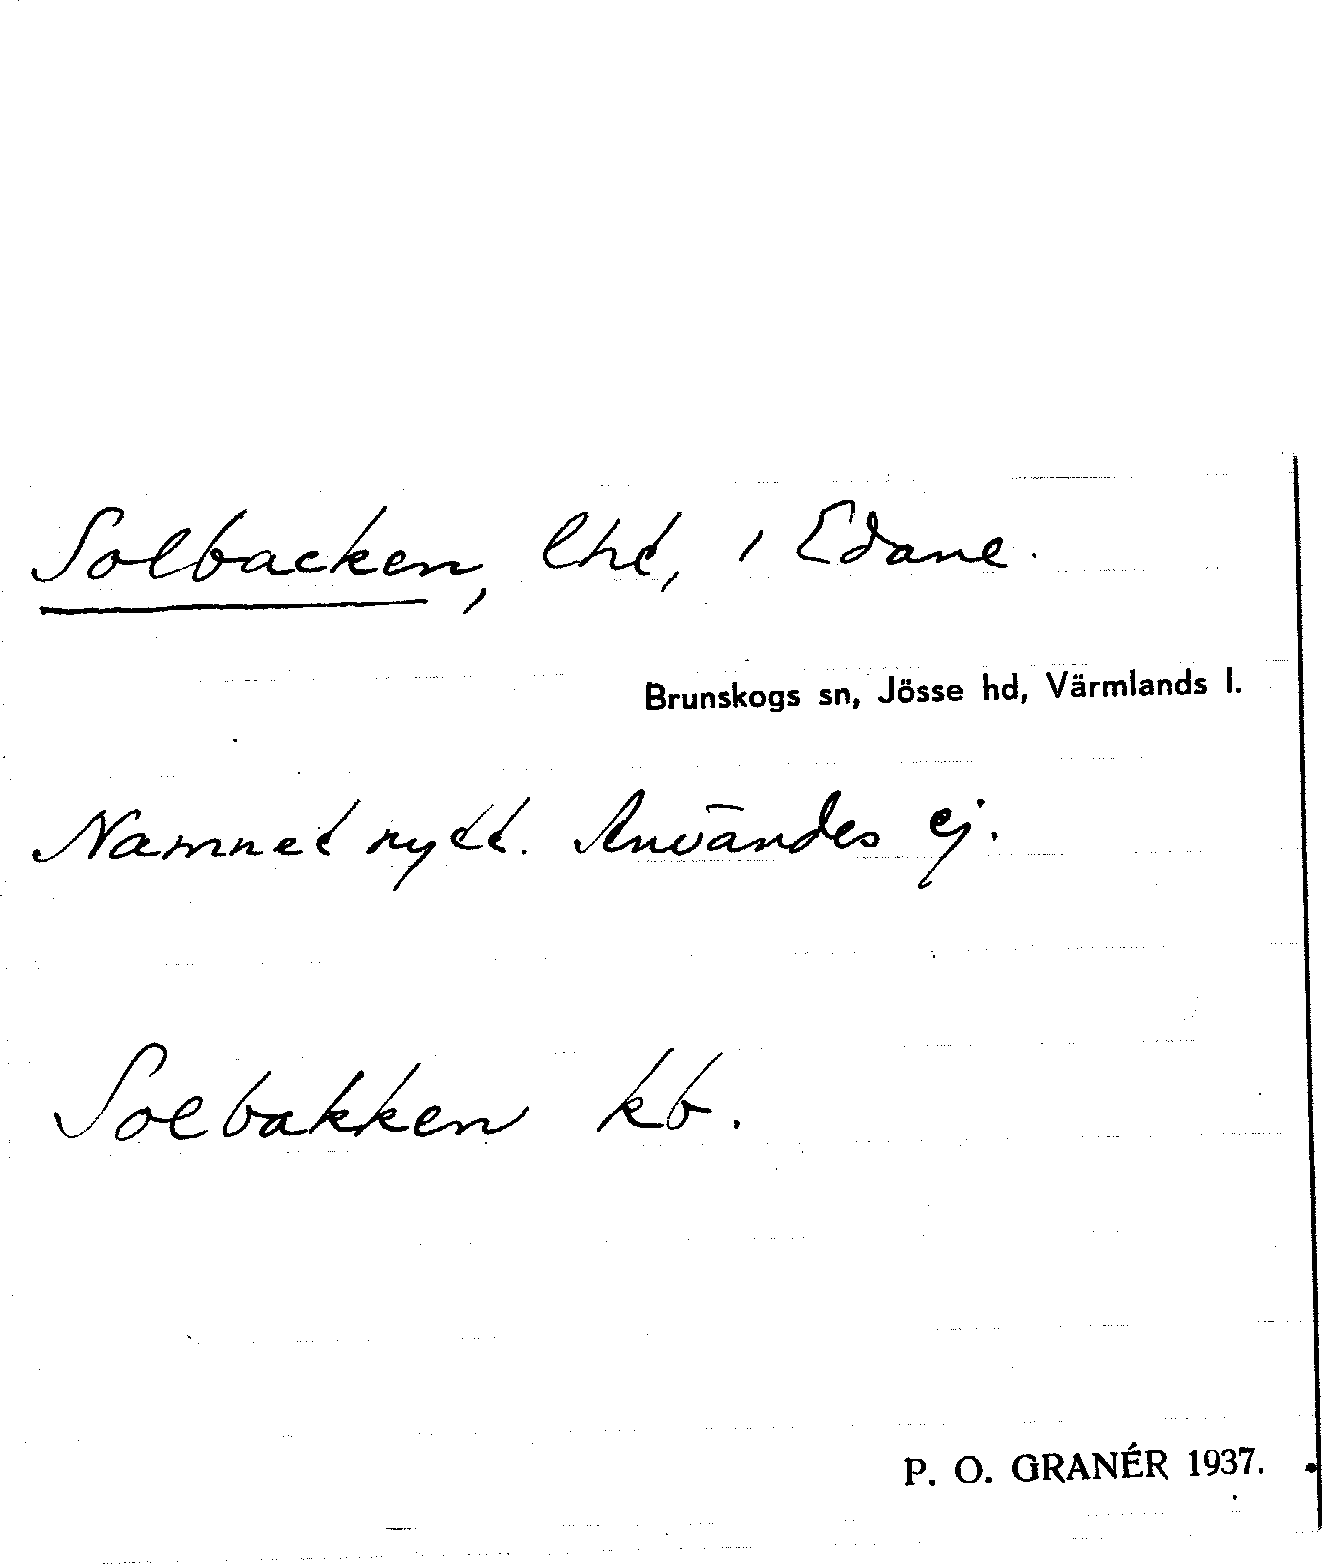 Solbacken, lht, i Edane.
Brunskogs sn, Jösse hd, Värmlands l.
Namnet nytt. Användes ej.
Solbakken kb.
P. O. GRANÉR 1937.